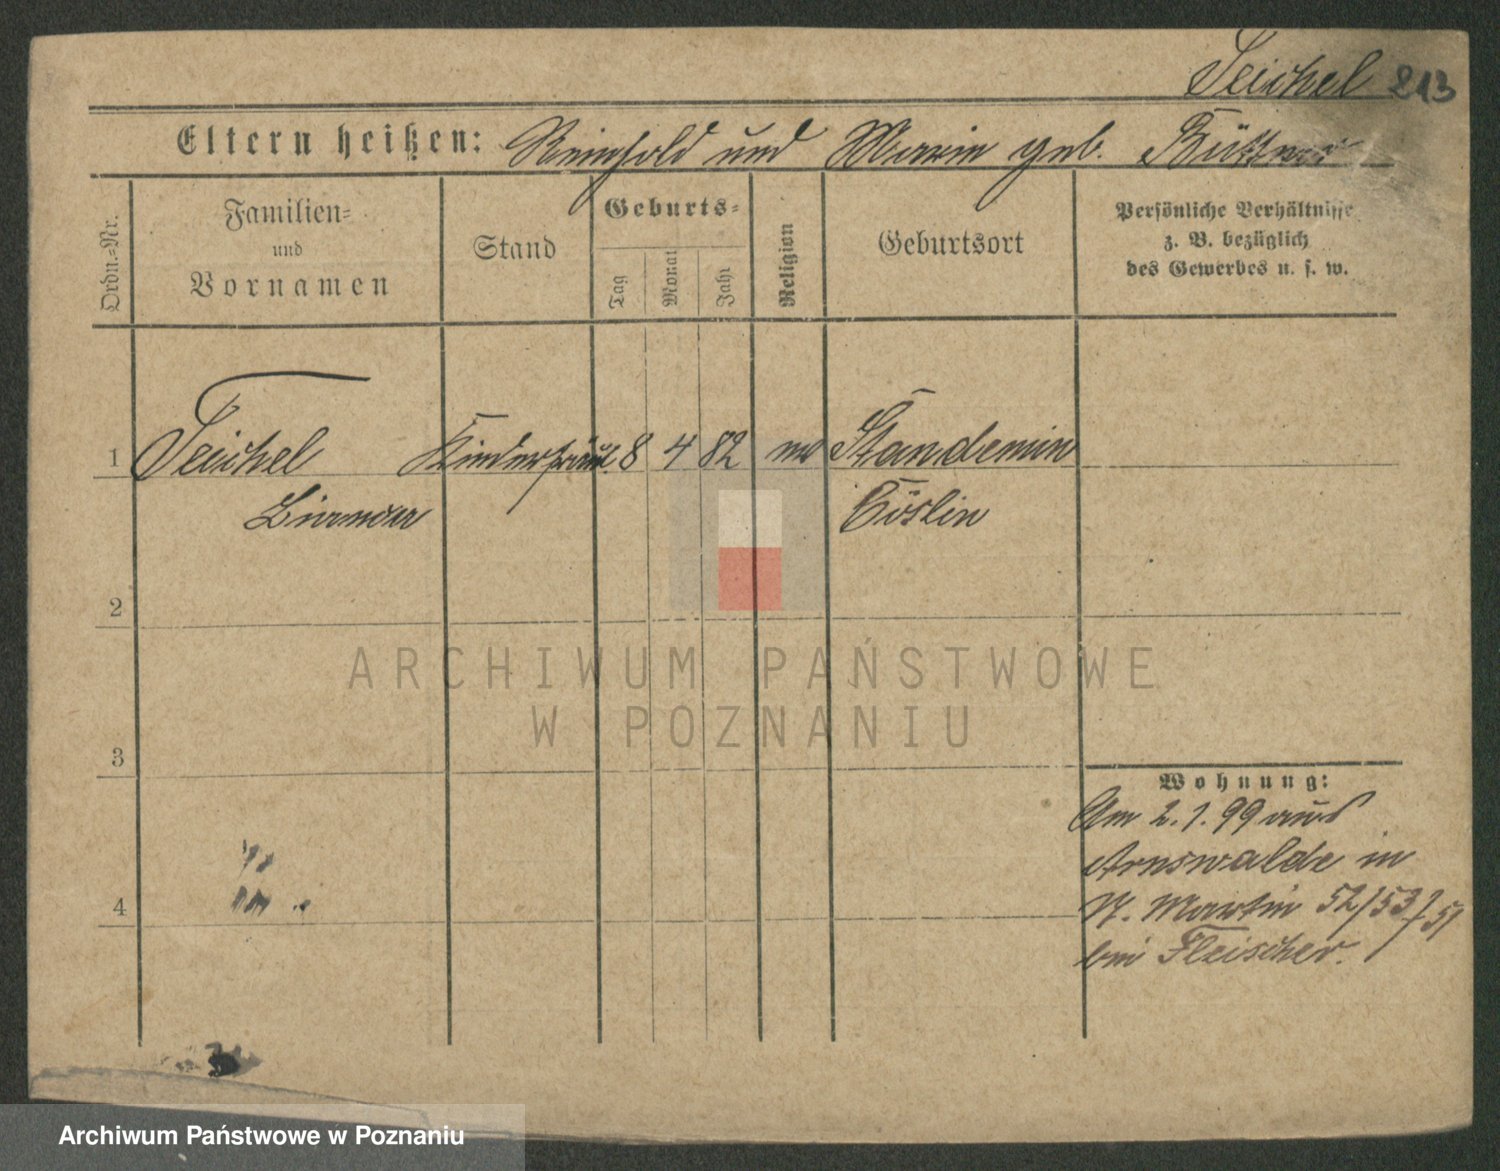 Teichel 213
Eltern heißen: Reinhold und Marie geb. Büttner
Ordn.-Nr.
Familien-
und
Vornamen
Stand
Geburts-
Tag
Monat
Jahr
Religion
Geburtsort
Persönliche Verhältnisse
z. B. bezüglich
des Gewerbes u. s. w.
1 Teichel 8 4 82 ev Standemin
Cöslin
2
3
4
Wohnung:
Am 2.1.99 aus
Arnswalde in
St. Martin 52/53 51
bei Fleischer.
ARCHIWUM PAŃSTWOWE
W POZNANIU
Archiwum Państwowe w Poznaniu